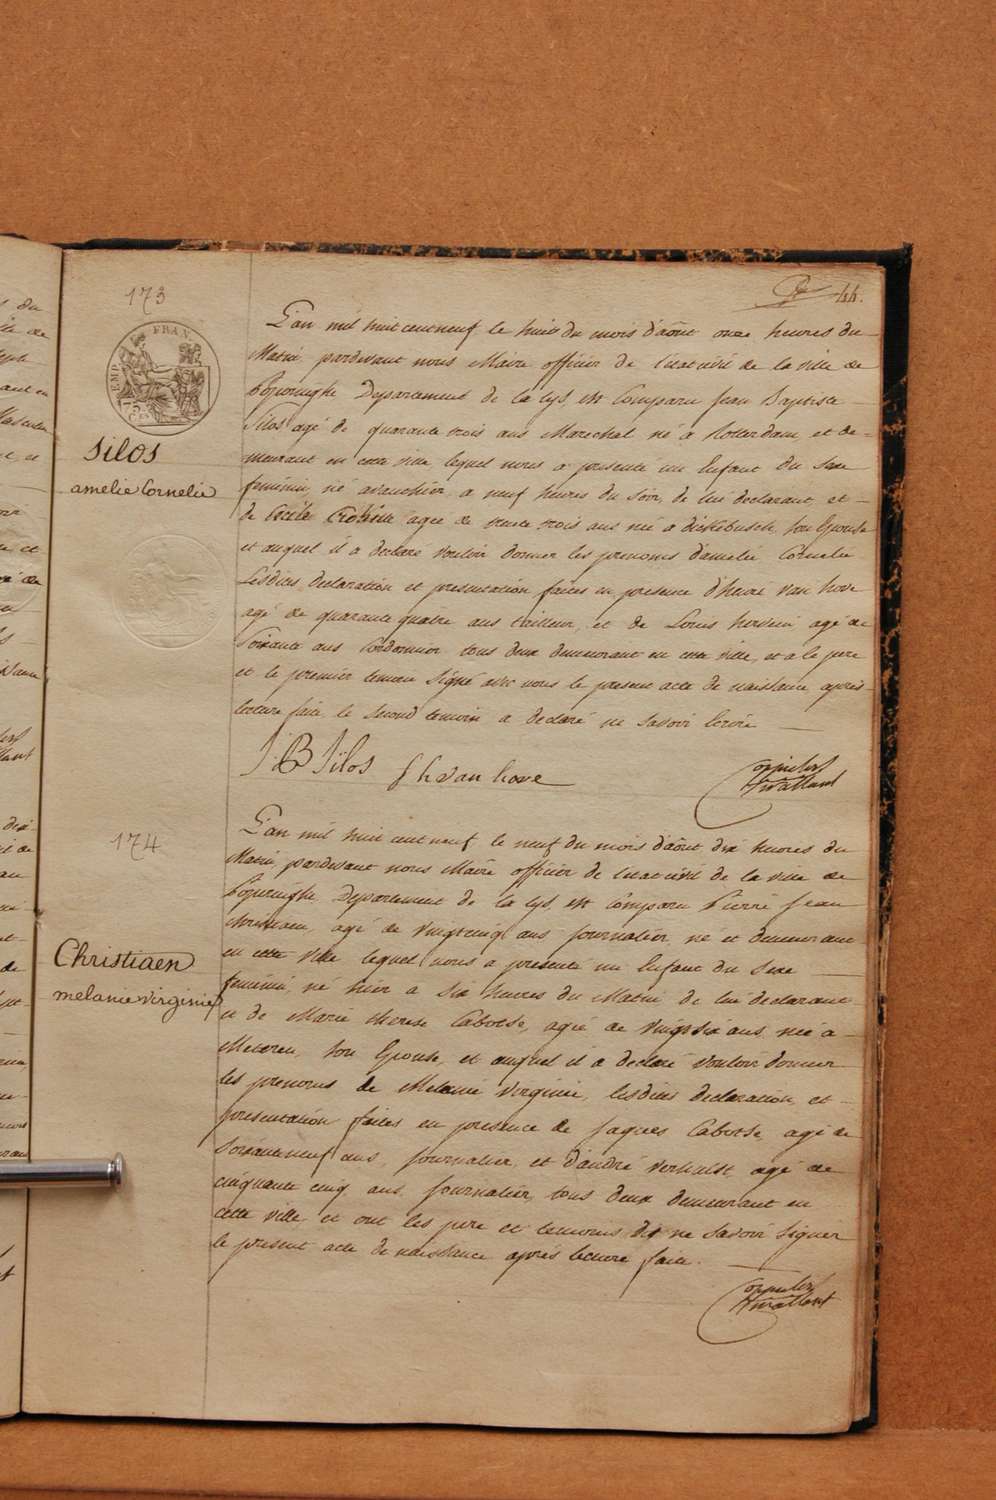 44.
173
EMP. FRAN
Silos
amelie Cornelie
L'an mil huit cent neuf le huit du mois d'août onze heures du
Matin, pardevant nous Maire officier de l'etat civil de la ville de
Poperinghe Departement de la Lys, est Comparu Jean Baptiste
Silos agé de quarante trois ans Marechal né à Rotterdam, et de-
meurant en cette ville, lequel nous a presenté un Enfant du Sexe
feminin, né avanthier a neuf heures du Soir, de lui declarant et
de Cecile agée de trente trois ans née à dickebusch, Son Epouse
et auquel il a declaré vouloir donner les prenoms d'amelie Cornelie
Lesdites declaration et presentation faites en presence d'henri van hove
agé de quarante quatre ans tailleur, et de Louis agé de
Soixante ans Cordonnier tous deux demeurant en cette ville, et a le pere
et le premier temoin Signé avec nous le present acte de naissance, après
lecture faite, le Second temoin a declaré ne Savoir Ecrire
J B Silos f h van hove
174
Christiaen
melanie virginie
L'an mil huit cent neuf le neuf du mois d'août dix heures du
Matin, pardevant nous Maire officier de l'etat civil de la ville de
Poperinghe Departement de la Lys, est Comparu Pierre Jean
christiaen, agé de vingtcinq ans Journalier né et demeurant
en cette ville lequel nous a presenté un Enfant du Sexe
feminin, né hier a Six heures du Matin de lui declarant
et de Marie therese Cabotse, agée de vingt Six ans née à
Meteren, Son Epouse, et auquel il a declaré vouloir donner
les prenoms de Melanie virginie, lesdites declaration et
presentation faites en presence de Jaques Cabotse, agé de
Soixanteneuf ans, Journalier et d'andré verhulst agé de
cinquante cinq ans Journalier, tous deux demeurant en
cette ville, et ont les pere et temoins dit ne Savoir Signer
le present acte de naissance après lecture faite.